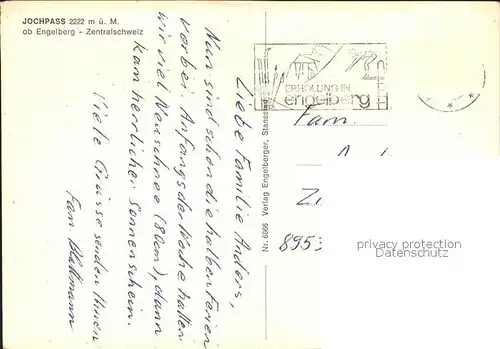 JOCHPASS 2222 m ü. M.
ob Engelberg - Zentralschweiz
Liebe Familie Anders,
Nun sind schon die halben Ferien
vorbei. Anfangs der Woche hatten
wir viel Neuschnee (80cm), dann
kam herrlicher Sonnenschein.
Viele Grüsse senden Ihnen
Fam. Blattmann
Nr. 6866 Verlag Engelberger, Stansstad
ERHOLUNG IN
engelberg
Fam.
A
Z
895
privacy protection
Datenschutz